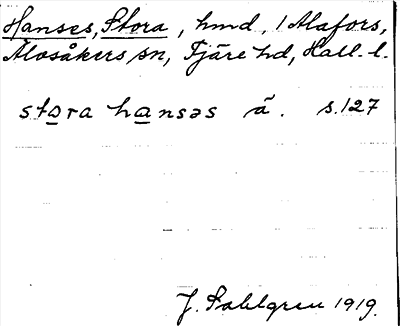 Hanses, Stora, hmd. i Alafors,
Alvsåkers sn, Fjäre hd, Hall. l.
stora hansəs ã. s. 127
J. Sahlgren 1919.